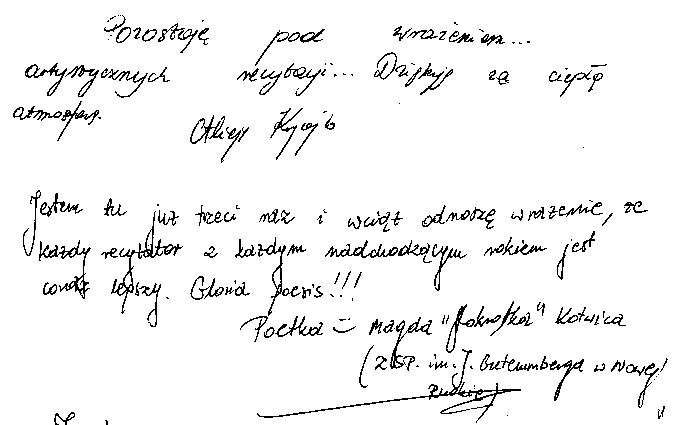 Pozostaję pod wrażeniem...
artystycznych recytacji... Dziękuję za ciepłą
atmosferę.
Jestem tu już trzeci raz i wciąż odnoszę wrażenie, że
każdy recytator z każdym nadchodzącym rokiem jest
coraz lepszy. Gloria poesis!!!
Poetka = Magda "Stokrotka" Kotwica
(ZSP. im. J. Gutenmberga w Nowej
Rudzie)